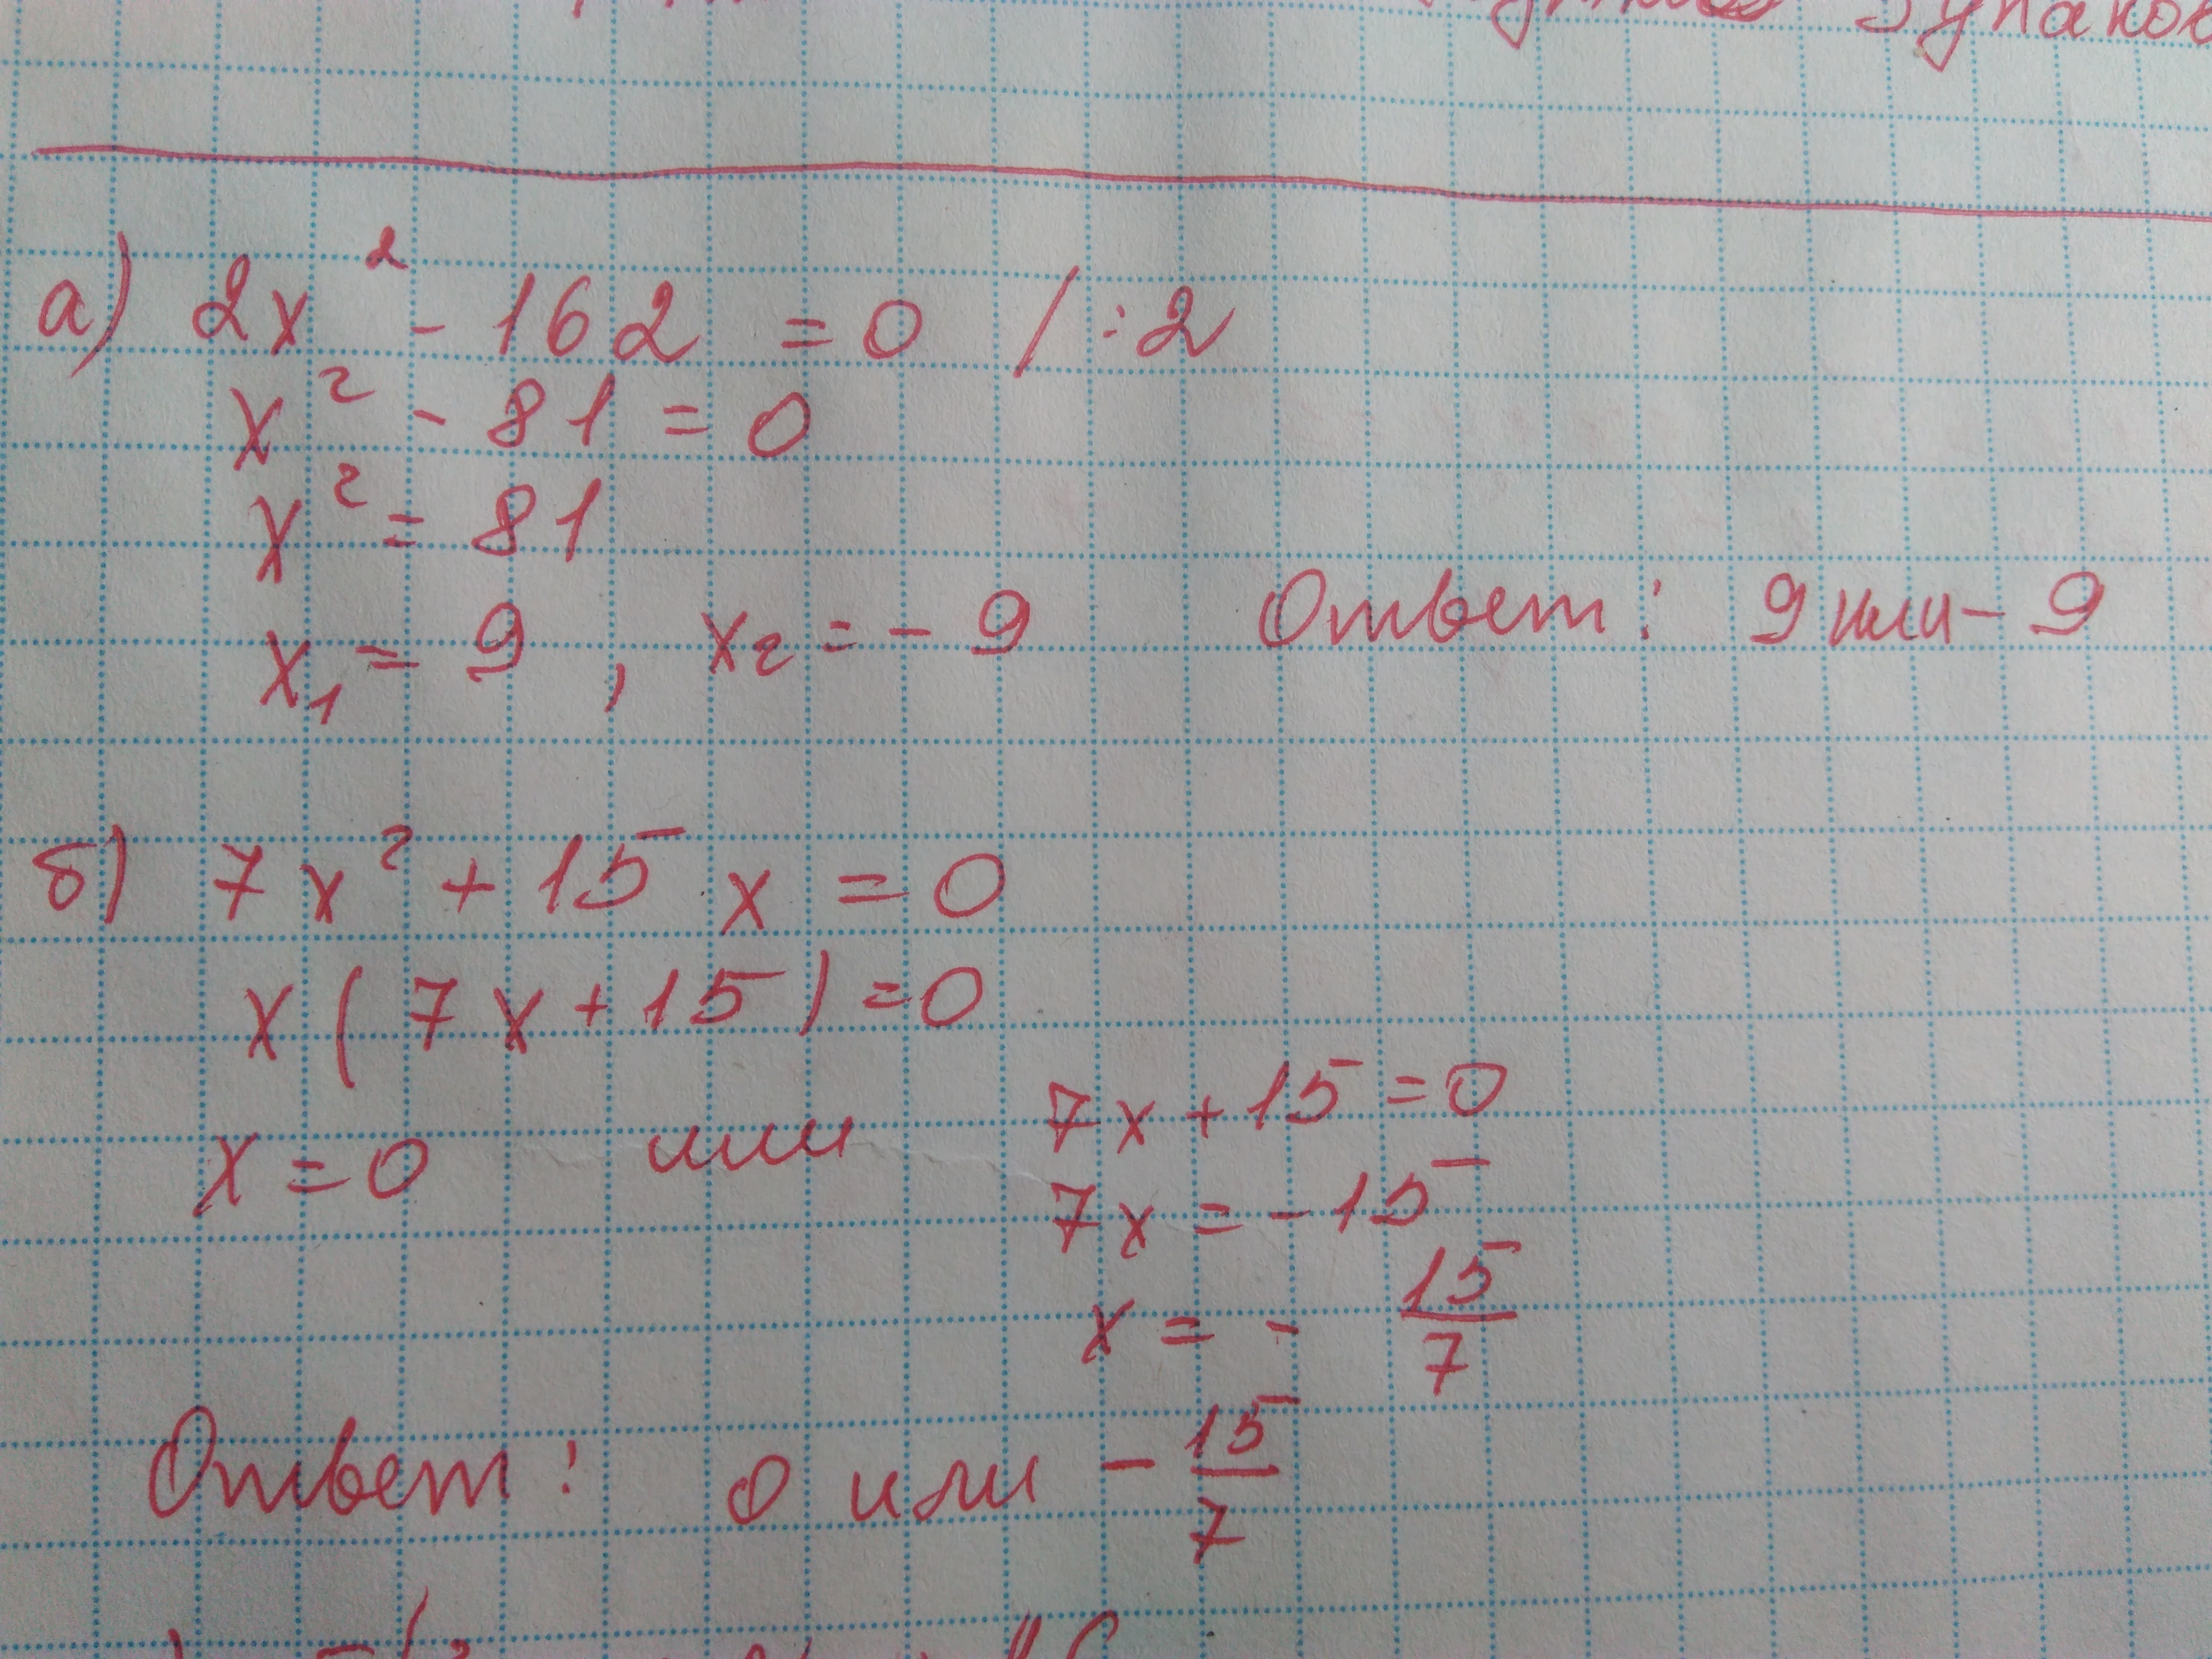 а) 2x² - 162 = 0 / :2
x² - 81 = 0
x² = 81
x₁ = 9 , x₂ = - 9 Ответ: 9 или - 9
б) 7x² + 15x = 0
x(7x + 15) = 0
x = 0 или 7x + 15 = 0
7x = - 15
x = - 15/7
Ответ: 0 или - 15/7